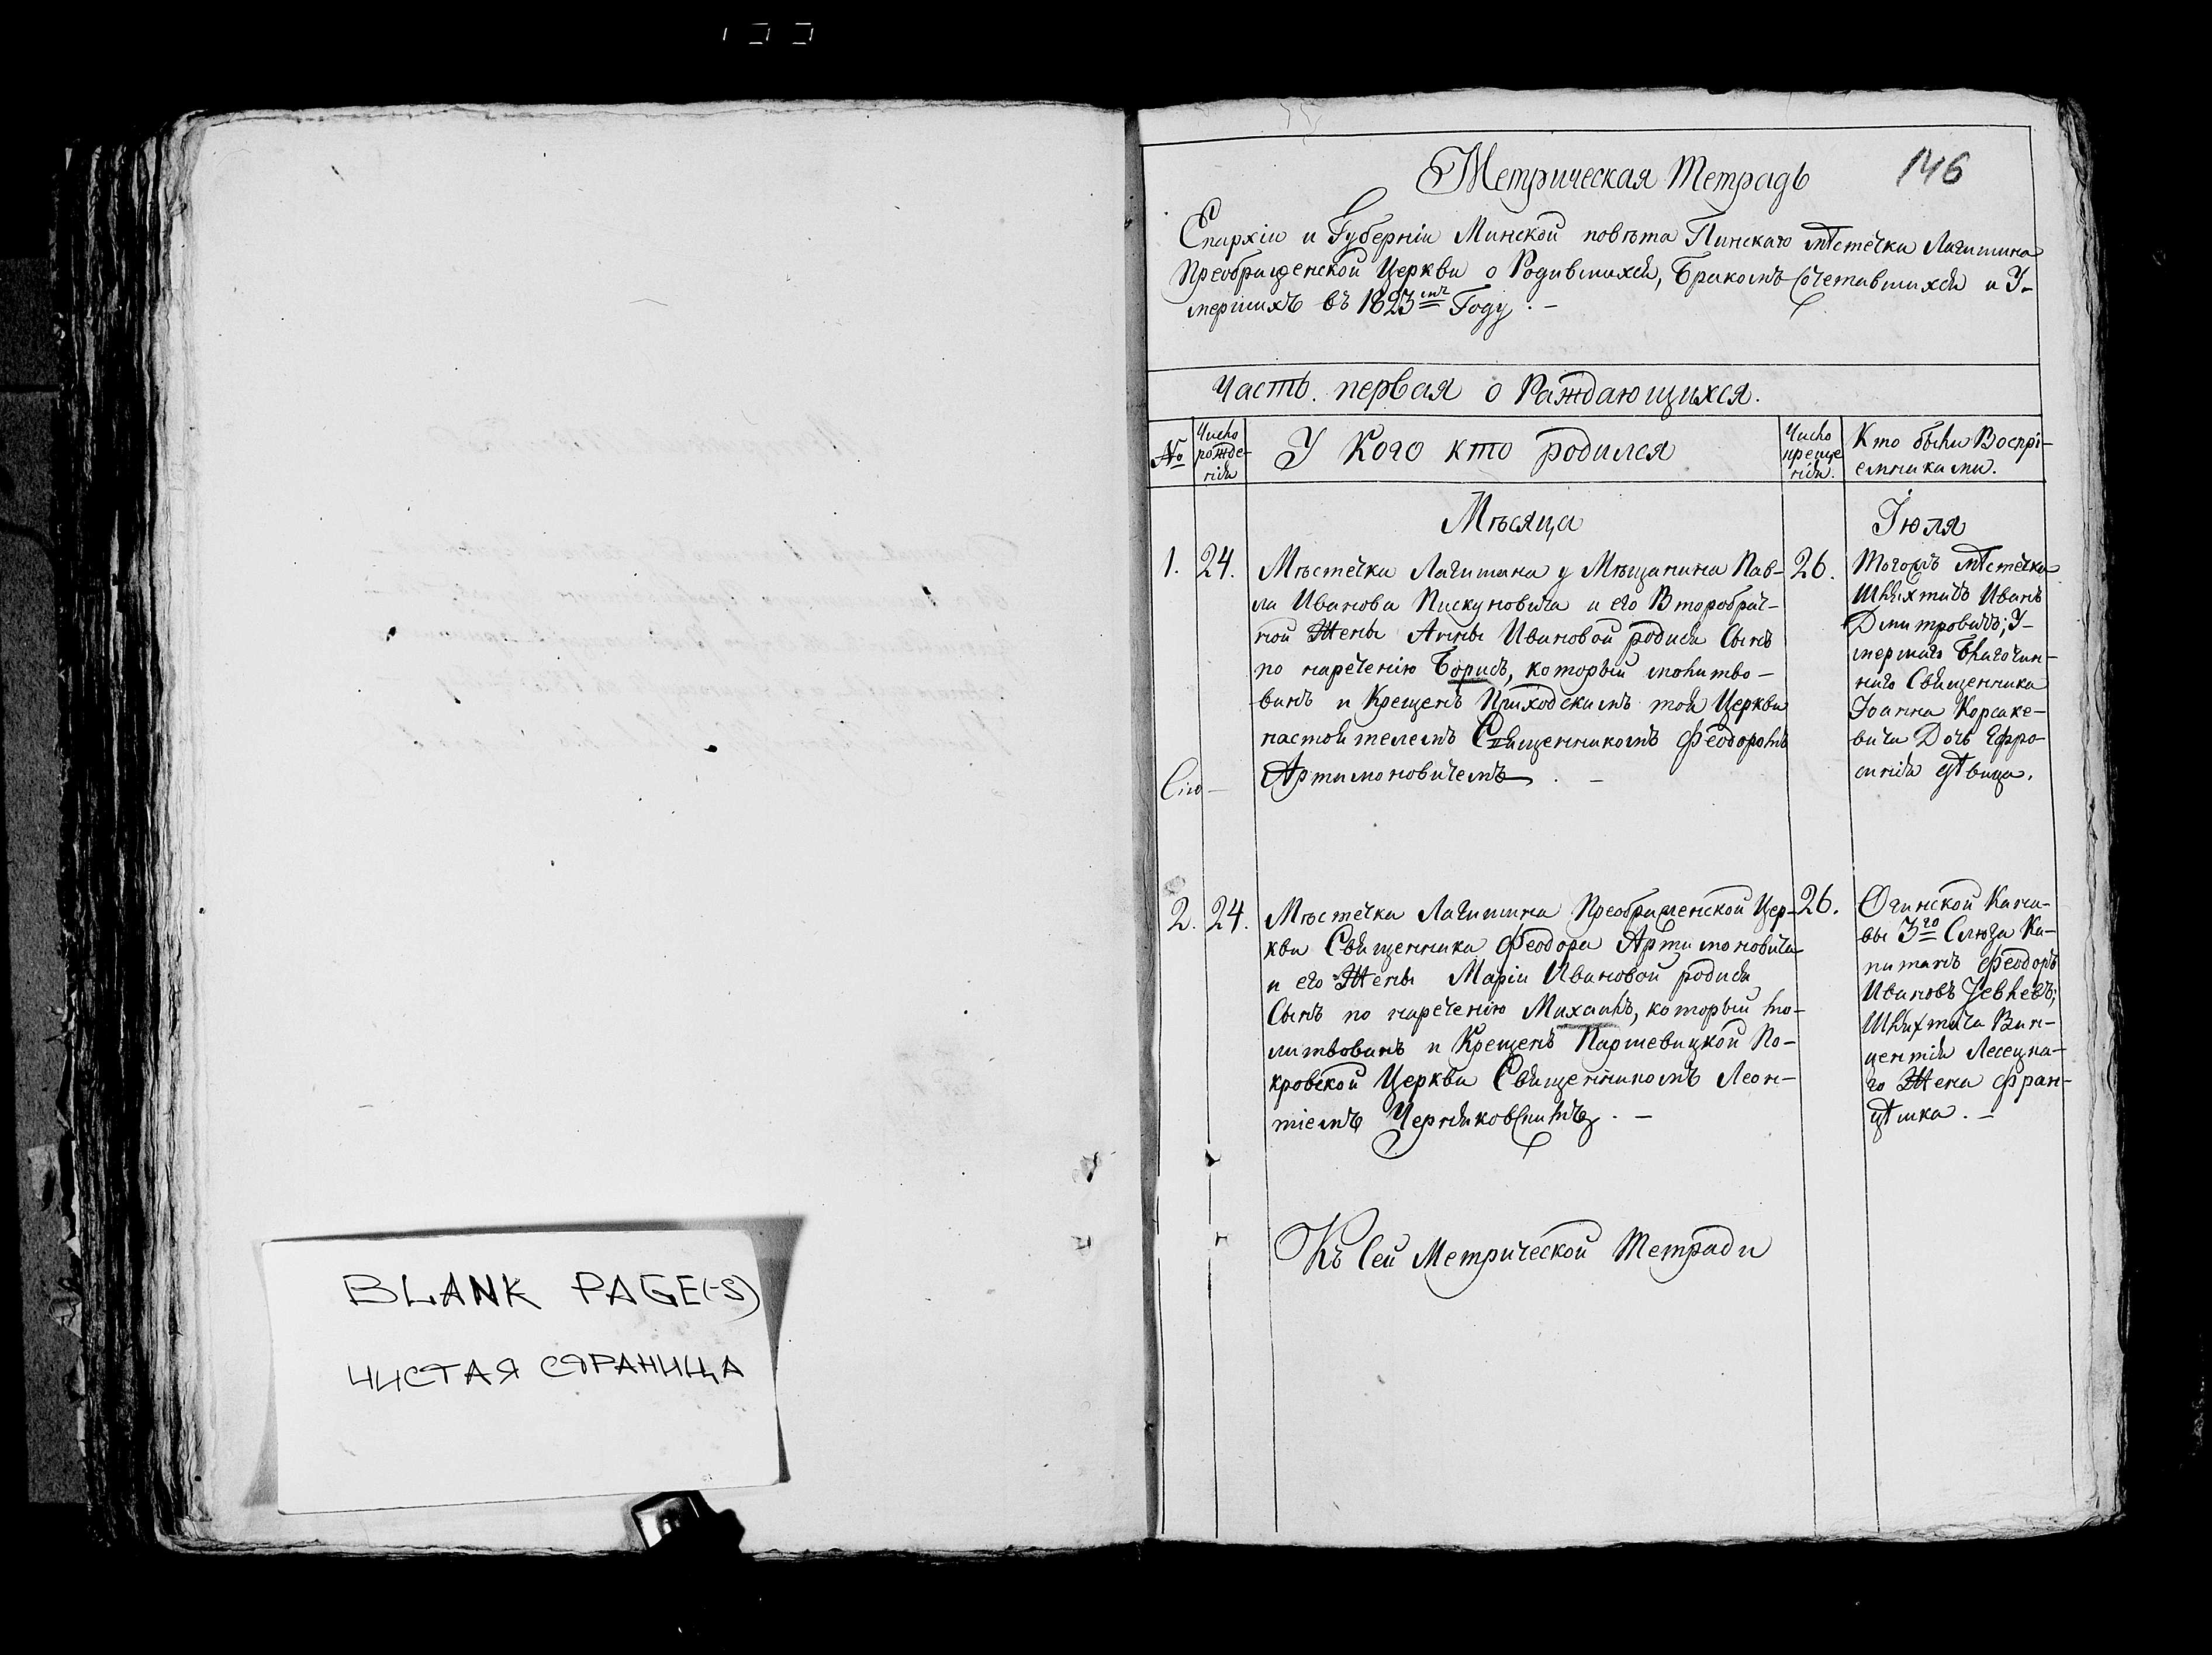 Метрическая Тетрадь
146
Епархіи и Губерніи Минской повѣта Пинскаго мѣстечка Лагишина
Преображенской Церкви о Родившихся, Бракомъ Сочетавшихся и У-
мершихъ въ 1823мъ Году. -
Часть первая о Раждающихся.
№
Число рожде-нія
У Кого кто родился
Число креще нія.
Кто были Воспрі-емниками.
Мѣсяца
Іюля
1.
24.
Мѣстечка Лагишина у Мѣщанина Пав-
ла Иванова Пискуновича и его Второбрач-
ной Жены Анны Ивановой родися Сынъ
по нареченію Борисъ, который молитво-
ванъ и Крещенъ Приходскимъ той Церкви
настоятелемъ Священникомъ Феодоромъ
Артимоновичемъ. -
26.
Тогожъ мѣстечка
Шляхтичъ Иванъ
Дмитровичъ; У-
мершаго Благочин-
наго Священника
Іоанна Корсаке-
вича Дочь Ефро-
синія дѣвица.
2.
24.
Мѣстечка Лагишина Преображенской Цер-
кви Священника Феодора Артимоновича
и его Жены Маріи Ивановой родися
Сынъ по нареченію Михаилъ, который мо-
литвованъ и Крещенъ Паршевицкой По-
кровской Церкви Священникомъ Леон-
тіемъ Черняковскимъ. -
26.
Огинской Кана-
вы 3го Слюза Ка-
питанъ Феодоръ
Ивановъ
Шляхтича Вин-
центія Лесецка-
го Жена Фран-
цѣшка. -
Къ Сей Метрической Тетради
BLANK PAGE(-S)
ЧИСТАЯ СТРАНИЦА